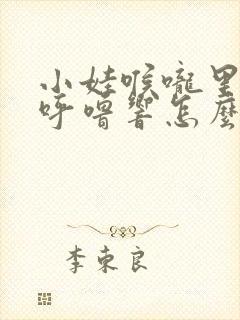 小娃喉嚨里
呼嚕響怎麼
李东良